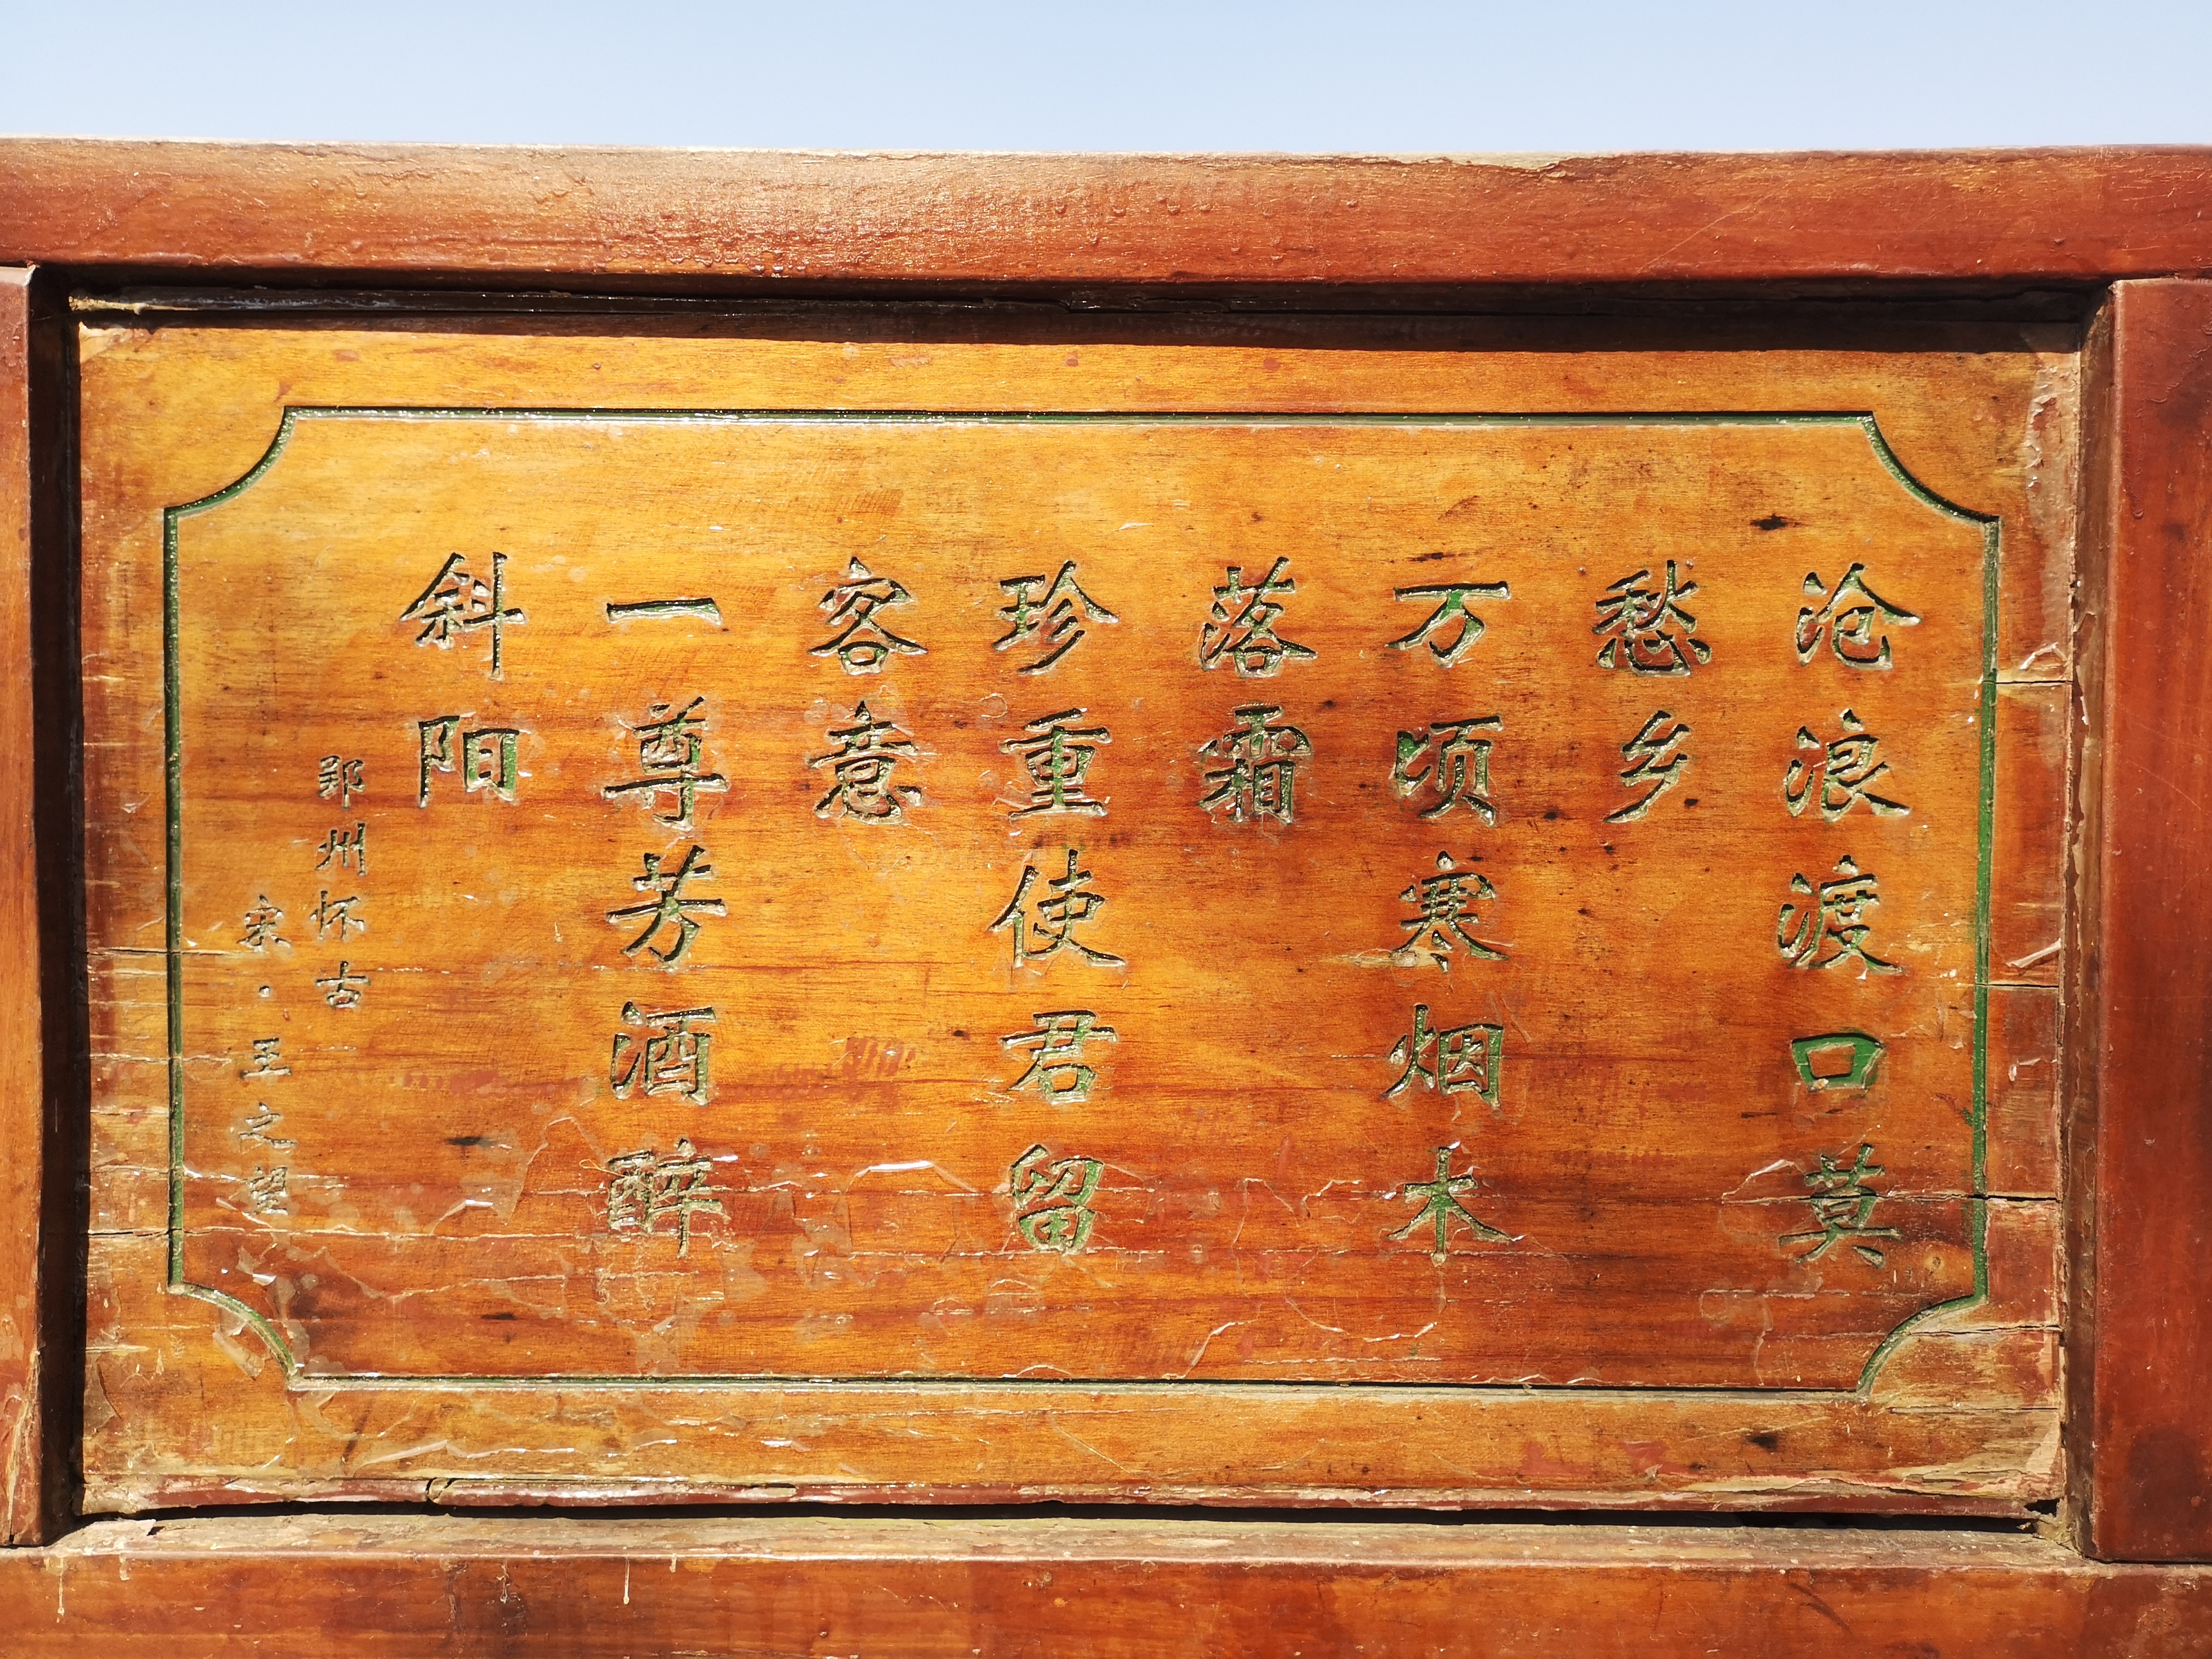 沧浪渡口莫
愁乡
万顷寒烟木
落霜
珍重使君留
客意
一尊芳酒醉
斜阳
郢州怀古
宋·王之望